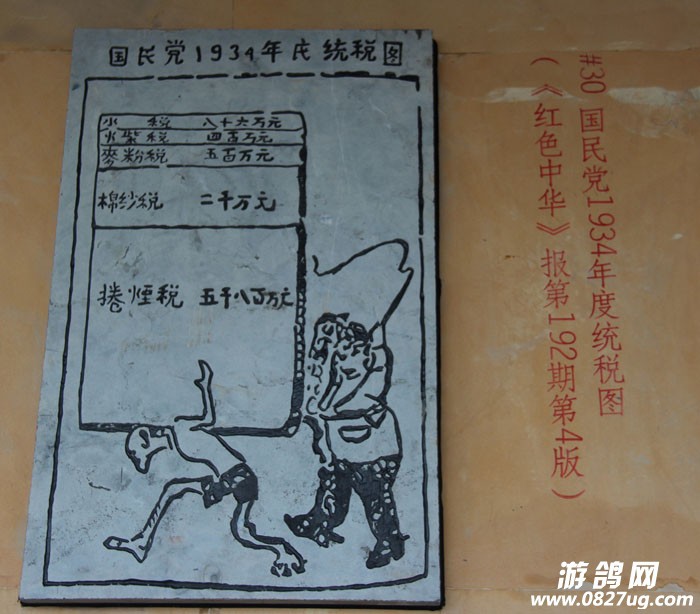 国民党1934年庄统税图
小 税 八十六万元
火柴税 四百万元
麥粉税 五百万元
棉纱税 二千万元
捲煙税 五千八百万元
#30 国民党1934年度统税图
（《红色中华》报第192期第4版）
游鸽网
www.0827ug.com